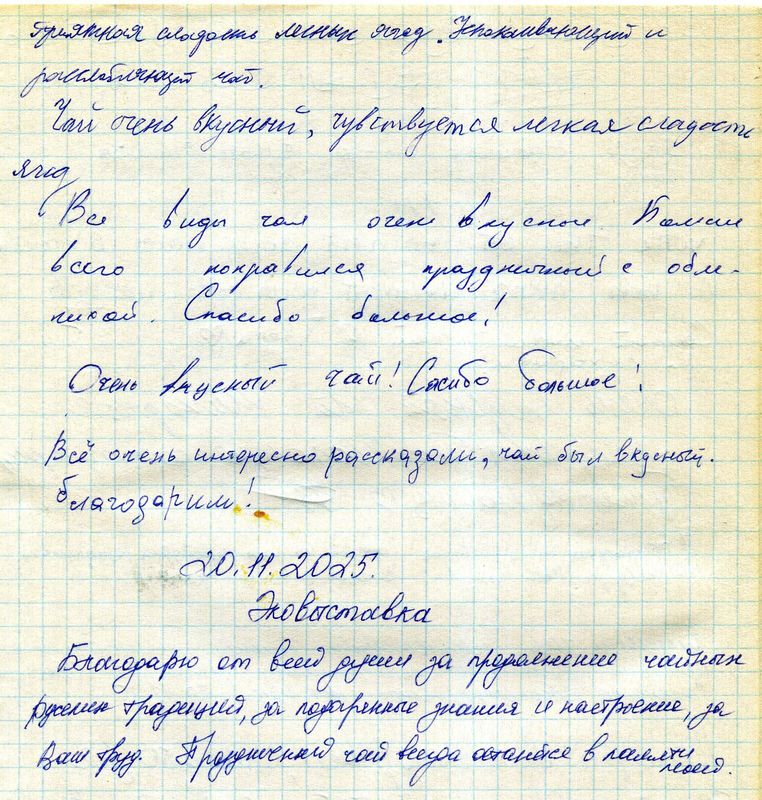 Приятная сладость лесных ягод. Успокаивающий и
расслабляющий чай.
Чай очень вкусный, чувствуется легкая сладость
ягод
Все виды чая очень вкусные. Больше
всего понравился праздничный с обле-
пихой. Спасибо большое!
Очень вкусный чай! Сасибо большое!
Всё очень интересно рассказали, чай был вкусный.
Благодарим!
20.11.2025.
Эковыставка
Благодарю от всей души за продолжение чайных
русских традиций, за подаренные знания и настроение, за
Ваш труд. Праздничный чай всегда останется в памяти
моей.